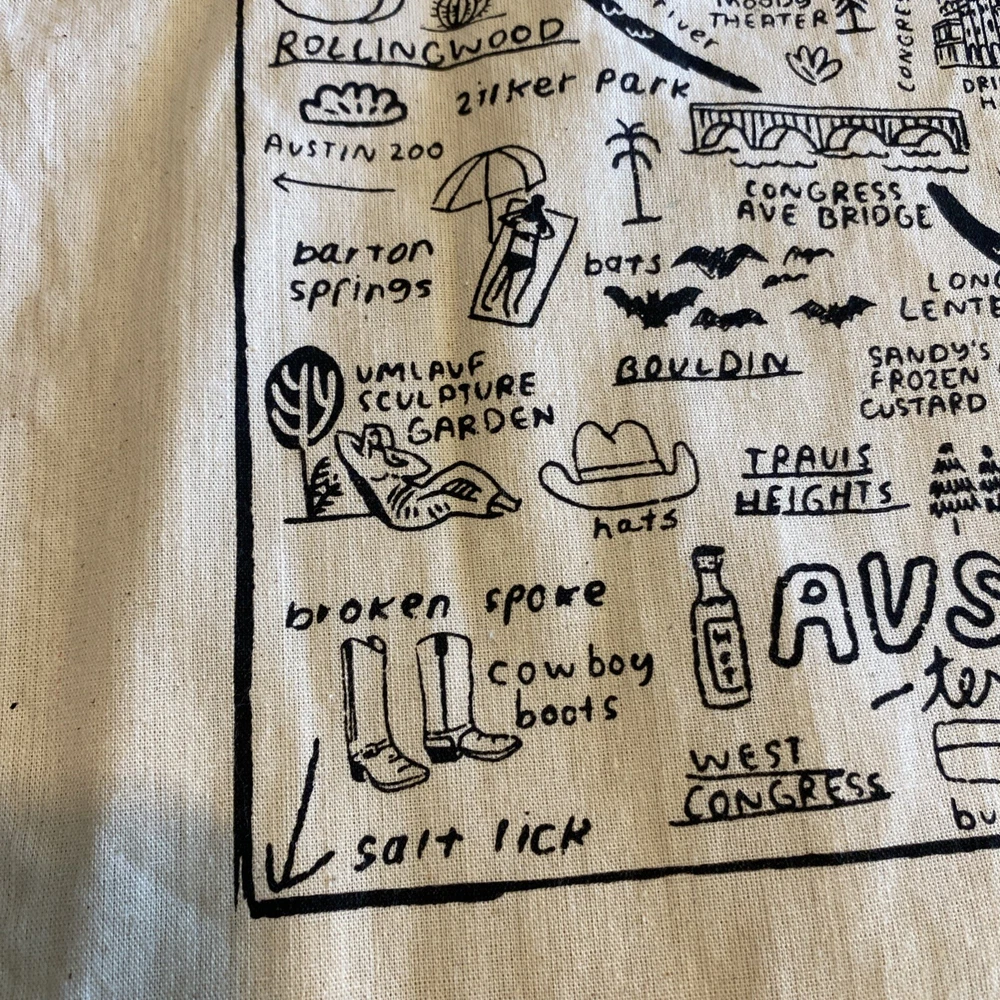 ROLLINGWOOD
river
MOODY
THEATER
CONGRES
DRI
H
zilker park
AUSTIN ZOO
CONGRESS
AVE BRIDGE
barton
springs
bats
LONG
LENTE
BOULDIN
SANDY'S
FROZEN
CUSTARD
UMLAUF
SCULPTURE
GARDEN
hats
TRAVIS
HEIGHTS
broken spoke
HOT
AUS
-te
cowboy
boots
WEST
CONGRESS
bu
salt lick